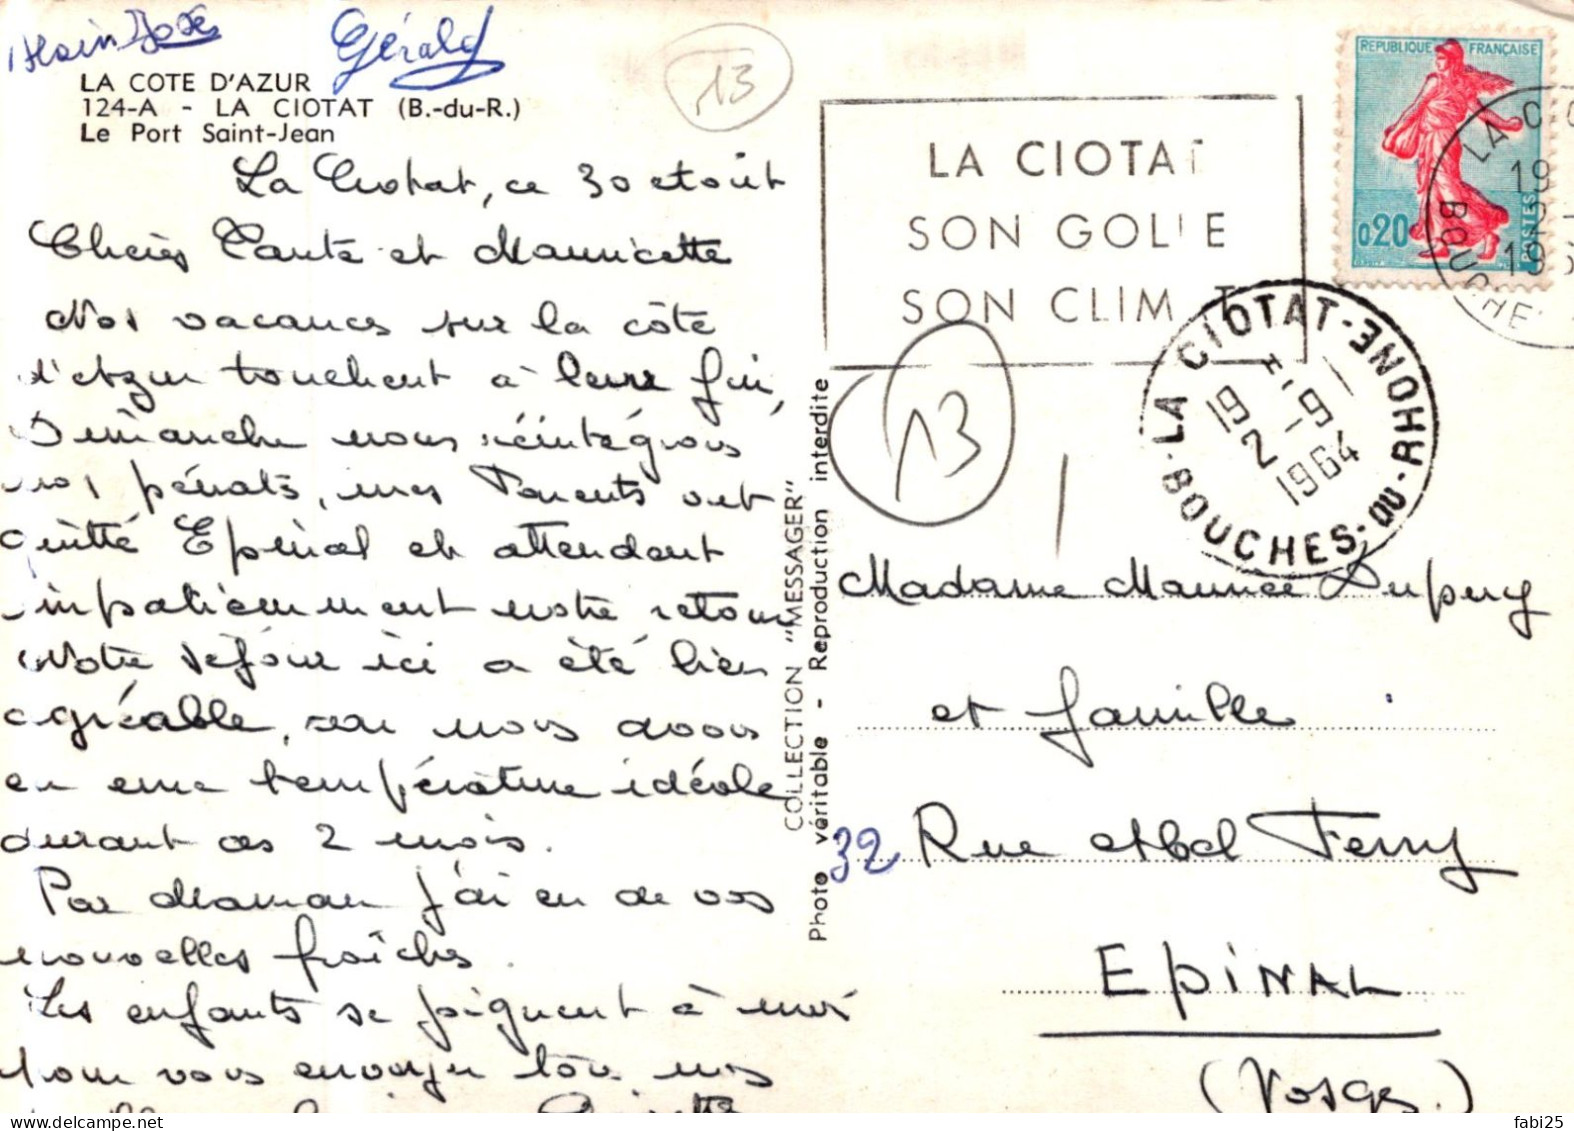 Alain José
Gérald
13
LA COTE D'AZUR
124-A - LA CIOTAT (B.-du-R.)
Le Port Saint-Jean
La Ciotat, ce 30 Août
Chères Tante et Mauricette
Nos vacances sur la côte
d'Azur touchent à leur fin,
Dimanche nous réintégrons
nos pénats, mes Parents ont
quitté Epinal et attendent
impatiemment notre retour
Notre séjour ici a été bien
agréable, car nous avons
eu une température idéale
durant ces 2 mois.
Par Maman j'ai eu de vos
nouvelles fraîches.
Les enfants se joignent à moi
pour vous envoyer tous nos
COLLECTION "MESSAGER"
Photo véritable - Reproduction interdite
LA CIOTAT
SON GOLFE
SON CLIMAT
REPUBLIQUE FRANÇAISE
0,20
POSTES
LA CIO
19
2-
BOUCHE
LA CIOTAT-
19 H.
2 -9
1964
BOUCHES-DU-RHONE
13
Madame Maurice Dupuy
et famille
32 Rue Abel Ferry
EPINAL
(Vosges.)
fabi25